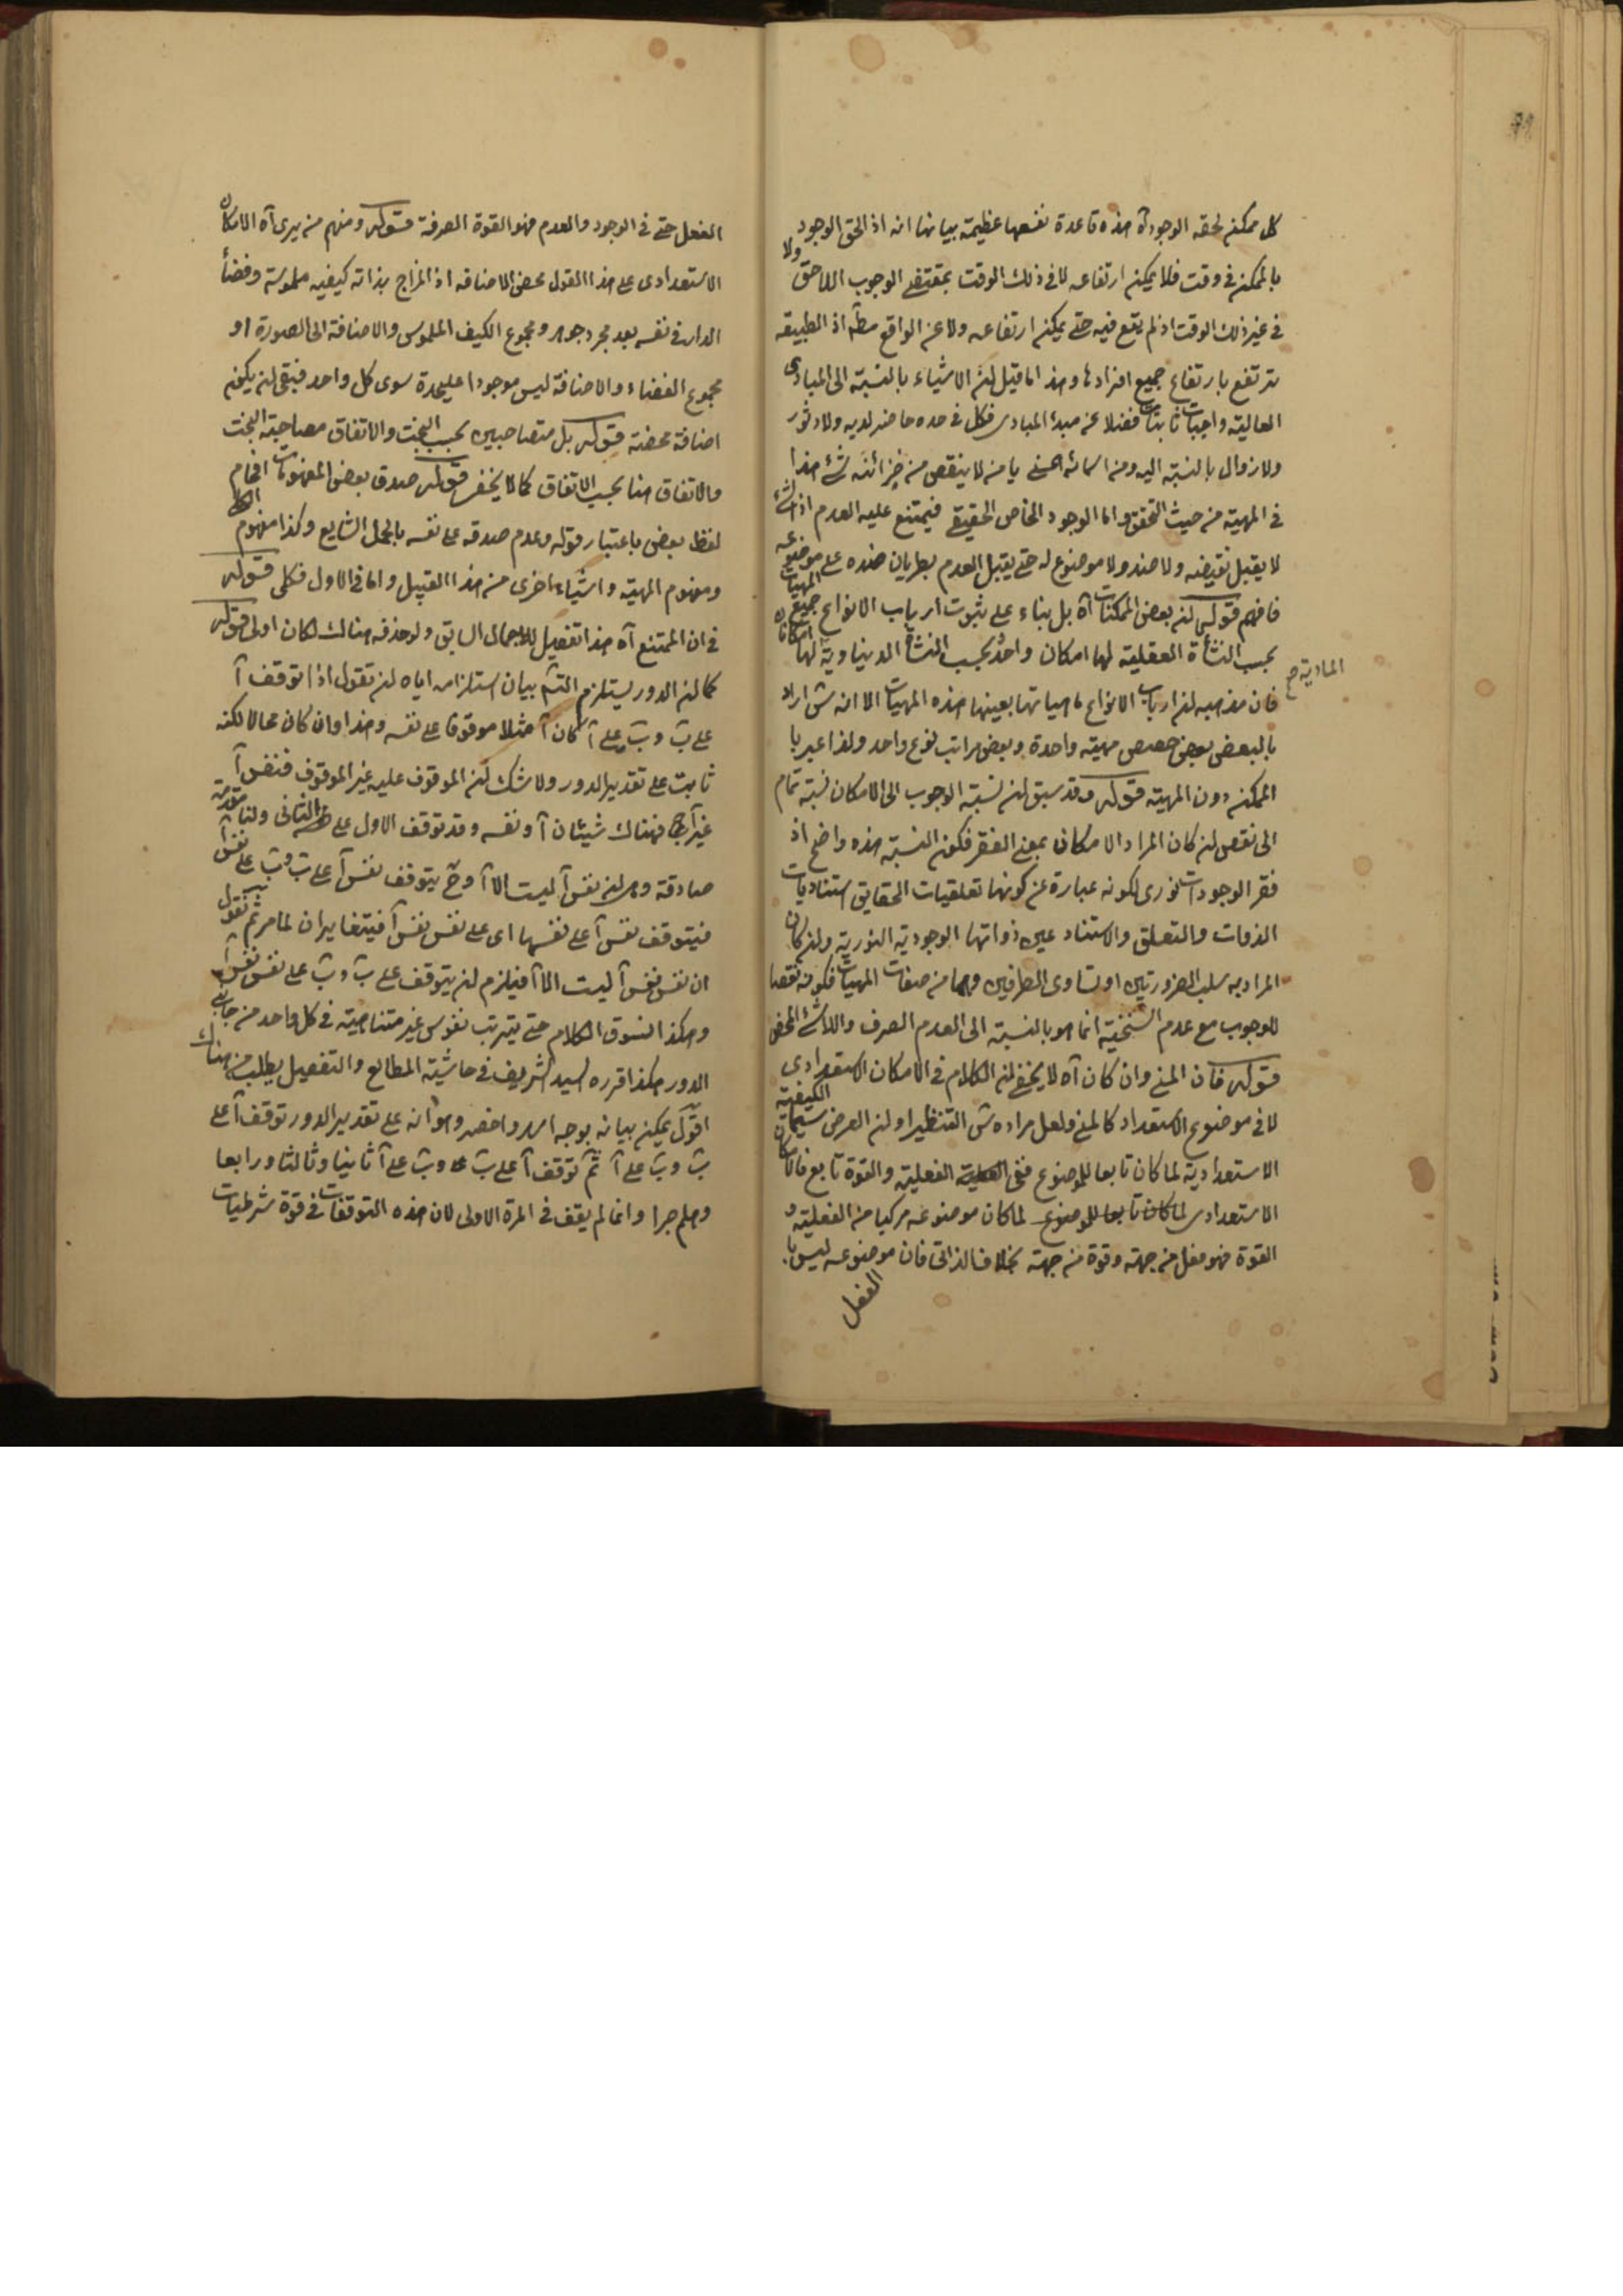 كل ممكن لحقه الوجود آه هذه قاعدة نفعها عظيمة بيانها انه اذا لحق الوجود
بالممكن فى وقت فلا يمكن ارتفاعه لا فى ذلك الوقت بمقتضى الوجوب اللاحق ولا
فى غير ذلك الوقت اذ لم يقع فيه حتى يمكن ارتفاعه ولا عن الواقع مطلقا اذ الطبيعة
ترتفع بارتفاع جميع افرادها وهذا ما قيل ان الاشياء بالنسبة الى المبادى
العالية واجبات ثابتات فضلا عن مبدء المبادى فكل فى حده حاضر لديه ولا دثور
ولا زوال بالنسبة اليه ومن اسمائه الحسنى يا من لا ينقص من خزائنه شئ هذا
فى المهية من حيث التحقق واما الوجود الخاص الحقيقى فيمتنع عليه العدم اذ الشئ
لا يقبل نقيضه ولا ضد ولا موضوع له حتى يقبل العدم بطريان ضده على موضوعه
فافهم قوله ان بعض الممكنات آه بل بناء على ثبوت ارباب الانواع جميع المهيات
بحسب النشأة العقلية لها امكان واحد وبحسب النشأة الدنياوية لها امكانان
المادية صح
فان مذهبه ان ارباب الانواع ماهياتها بعينها هذه المهيات الا انه ش اراد
بالبعض بعض حصص مهية واحدة وبعض مراتب نوع واحد ولذا عبر با
الممكن دون المهية قوله وقد سبق ان نسبة الوجوب الى الامكان نسبة تمام
الى نقص ان كان المراد الامكان بمعنى الفقر فكون النسبة هذه واضح اذ
فقر الوجودات نورى لكونه عبارة عن كونها تعلقيات الحقايق استناديات
الذوات والتعلق والاستناد عين ذواتها الوجودية النورية وان كان
المراد به سلب الضرورتين او تساوى الطرفين وهما من صفات المهيات فكونه نقصا
للوجوب مع عدم السنخية انما هو بالنسبة الى العدم الصرف واللاشئ المحض
قوله فان المنى وان كان آه لا يخفى ان الكلام فى الامكان الاستعدادى
لا فى موضوع الاستعداد كالمنى ولعل مراده ش التنظير او ان العرض سيما الكيفية
الاستعدادية لما كان تابعا للموضوع ففى الفعلية والقوة تابع فالامكان
الاستعدادى لما كان تابعا للموضوع لما كان موضوعه مركبا من الفعلية و
القوة فهو فعل من جهة وقوة من جهة بخلاف الذاتى فان موضوعه ليس با
الفعل
الفعل حتى فى الوجود والعدم فهو القوة الصرفة قوله ومنهم من يرى آه الامكان
الاستعدادى على هذا القول محض الاضافة اذ المزاج بذاته كيفية ملموسة وفضأ
الدار فى نفسه بعد مجرد جوهر ومجموع الكيف الملموس والاضافة الى الصورة او
مجموع الفضاء والاضافة ليس موجودا عليحدة سوى كل واحد فبقى ان يكون
اضافة محضة قوله بل متصاحبين بحسب البخت والاتفاق مصاحبة البخت
والاتفاق هنا بحسب الاتفاق كما لا يخفى قوله صدق بعض المفهومات اقحام
لفظ بعض باعتبار قوله وعدم صدقه على نفسه بالحمل الشايع وكذا مفهوم الكلى
ومفهوم المهية واشياء اخرى من هذا القبيل واما فى الاول فكلى قوله
فى ان الممتنع آه هذا تفصيل للاجمال السابق ولو حذفه هناك لكان اولى قوله
كما ان الدور يستلزم التسم بيان استلزامه اياه ان تقول اذا توقف آ
على ب وب على آ كان آ مثلا موقوفا على نفسه وهذا وان كان محالا لكنه
ثابت على تقدير الدور ولا شك ان الموقوف عليه غير الموقوف فنفس آ
غير آ فهناك شيئان آ ونفسه وقد توقف الاول على الثانى ولنا مقدمة
صادقة وهى ان نفس آ ليست الا آ وح يتوقف نفس آ على ب وب على نفس آ
فيتوقف نفس آ على نفسها اى على نفس نفس آ فيتغايران لما مر ثم نقول
ان نفس نفس آ ليست الا آ فيلزم ان يتوقف على ب وب على نفس نفس آ
وهكذا نسوق الكلام حتى يترتب نفوس غير متناهية فى كل واحد من جانبى
الدور هكذا قرره السيد الشريف فى حاشية المطالع والتفصيل يطلب من هناك
اقول يمكن بيانه بوجه اسد واخصر وهو انه على تقدير الدور توقف آ على
ب وب على آ ثم توقف آ على ب وب على آ ثانيا وثالثا ورابعا
وهلم جرا وانما لم يقف فى المرة الاولى لان هذه التوقفات فى قوة شرطيات